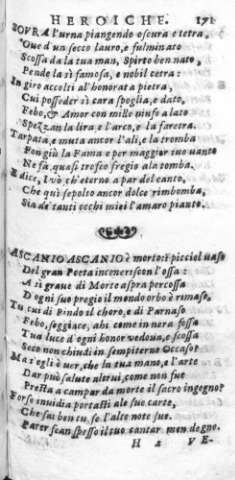 HEROICHE. 171
SOVRA l'urna piangendo oscura e tetra,
'Oue d'un secco lauro, e fulminato
Scossa da la tua man, Spirto ben nato,
Pende la sì famosa, e nobil cetra:
In giro accolti al'honorata pietra,
Cui posseder sì cara spoglia, e dato,
Febo, & Amor con mille ninfe a lato
Spezzan la lira e l'arco, e la faretra.
Tarpata, e muta ancor l'ali, e la tromba
Fon giù la Fama e per maggior suo uanto
Ne fa, quasi trofeo fregio ala tomba.
E dice, I vò ch'eterno a par del canto,
Che quì sepolto ancor dolce rimbomba,
Sia de' tanti occhi miei l'amaro pianto.
ASCANIO ASCANIO è morto: è picciol uaso
Del gran Poeta incenerison l'ossa:
A sì graue di Morte aspra percossa
D ogni suo pregio il mondo orbo è rimaso,
Tu cui di Pindo il choro, e di Parnaso
Febo, seggiace, ahi come in nera fossa
Tua luce d'ogni honor vedoua, e scossa
Seco non chiudi in sempiterno Occaso?
Ma s'egli è uer, che la tua mano, e l'arte
Dar può salute altrui, come non fue
Presta a campar da morte il sacro ingegno?
Forse inuidia portasti ale sue carte,
Che sai ben tu, se l'alte note sue
Parer fean spesso il tuo cantar men degno.
H 2 VE-